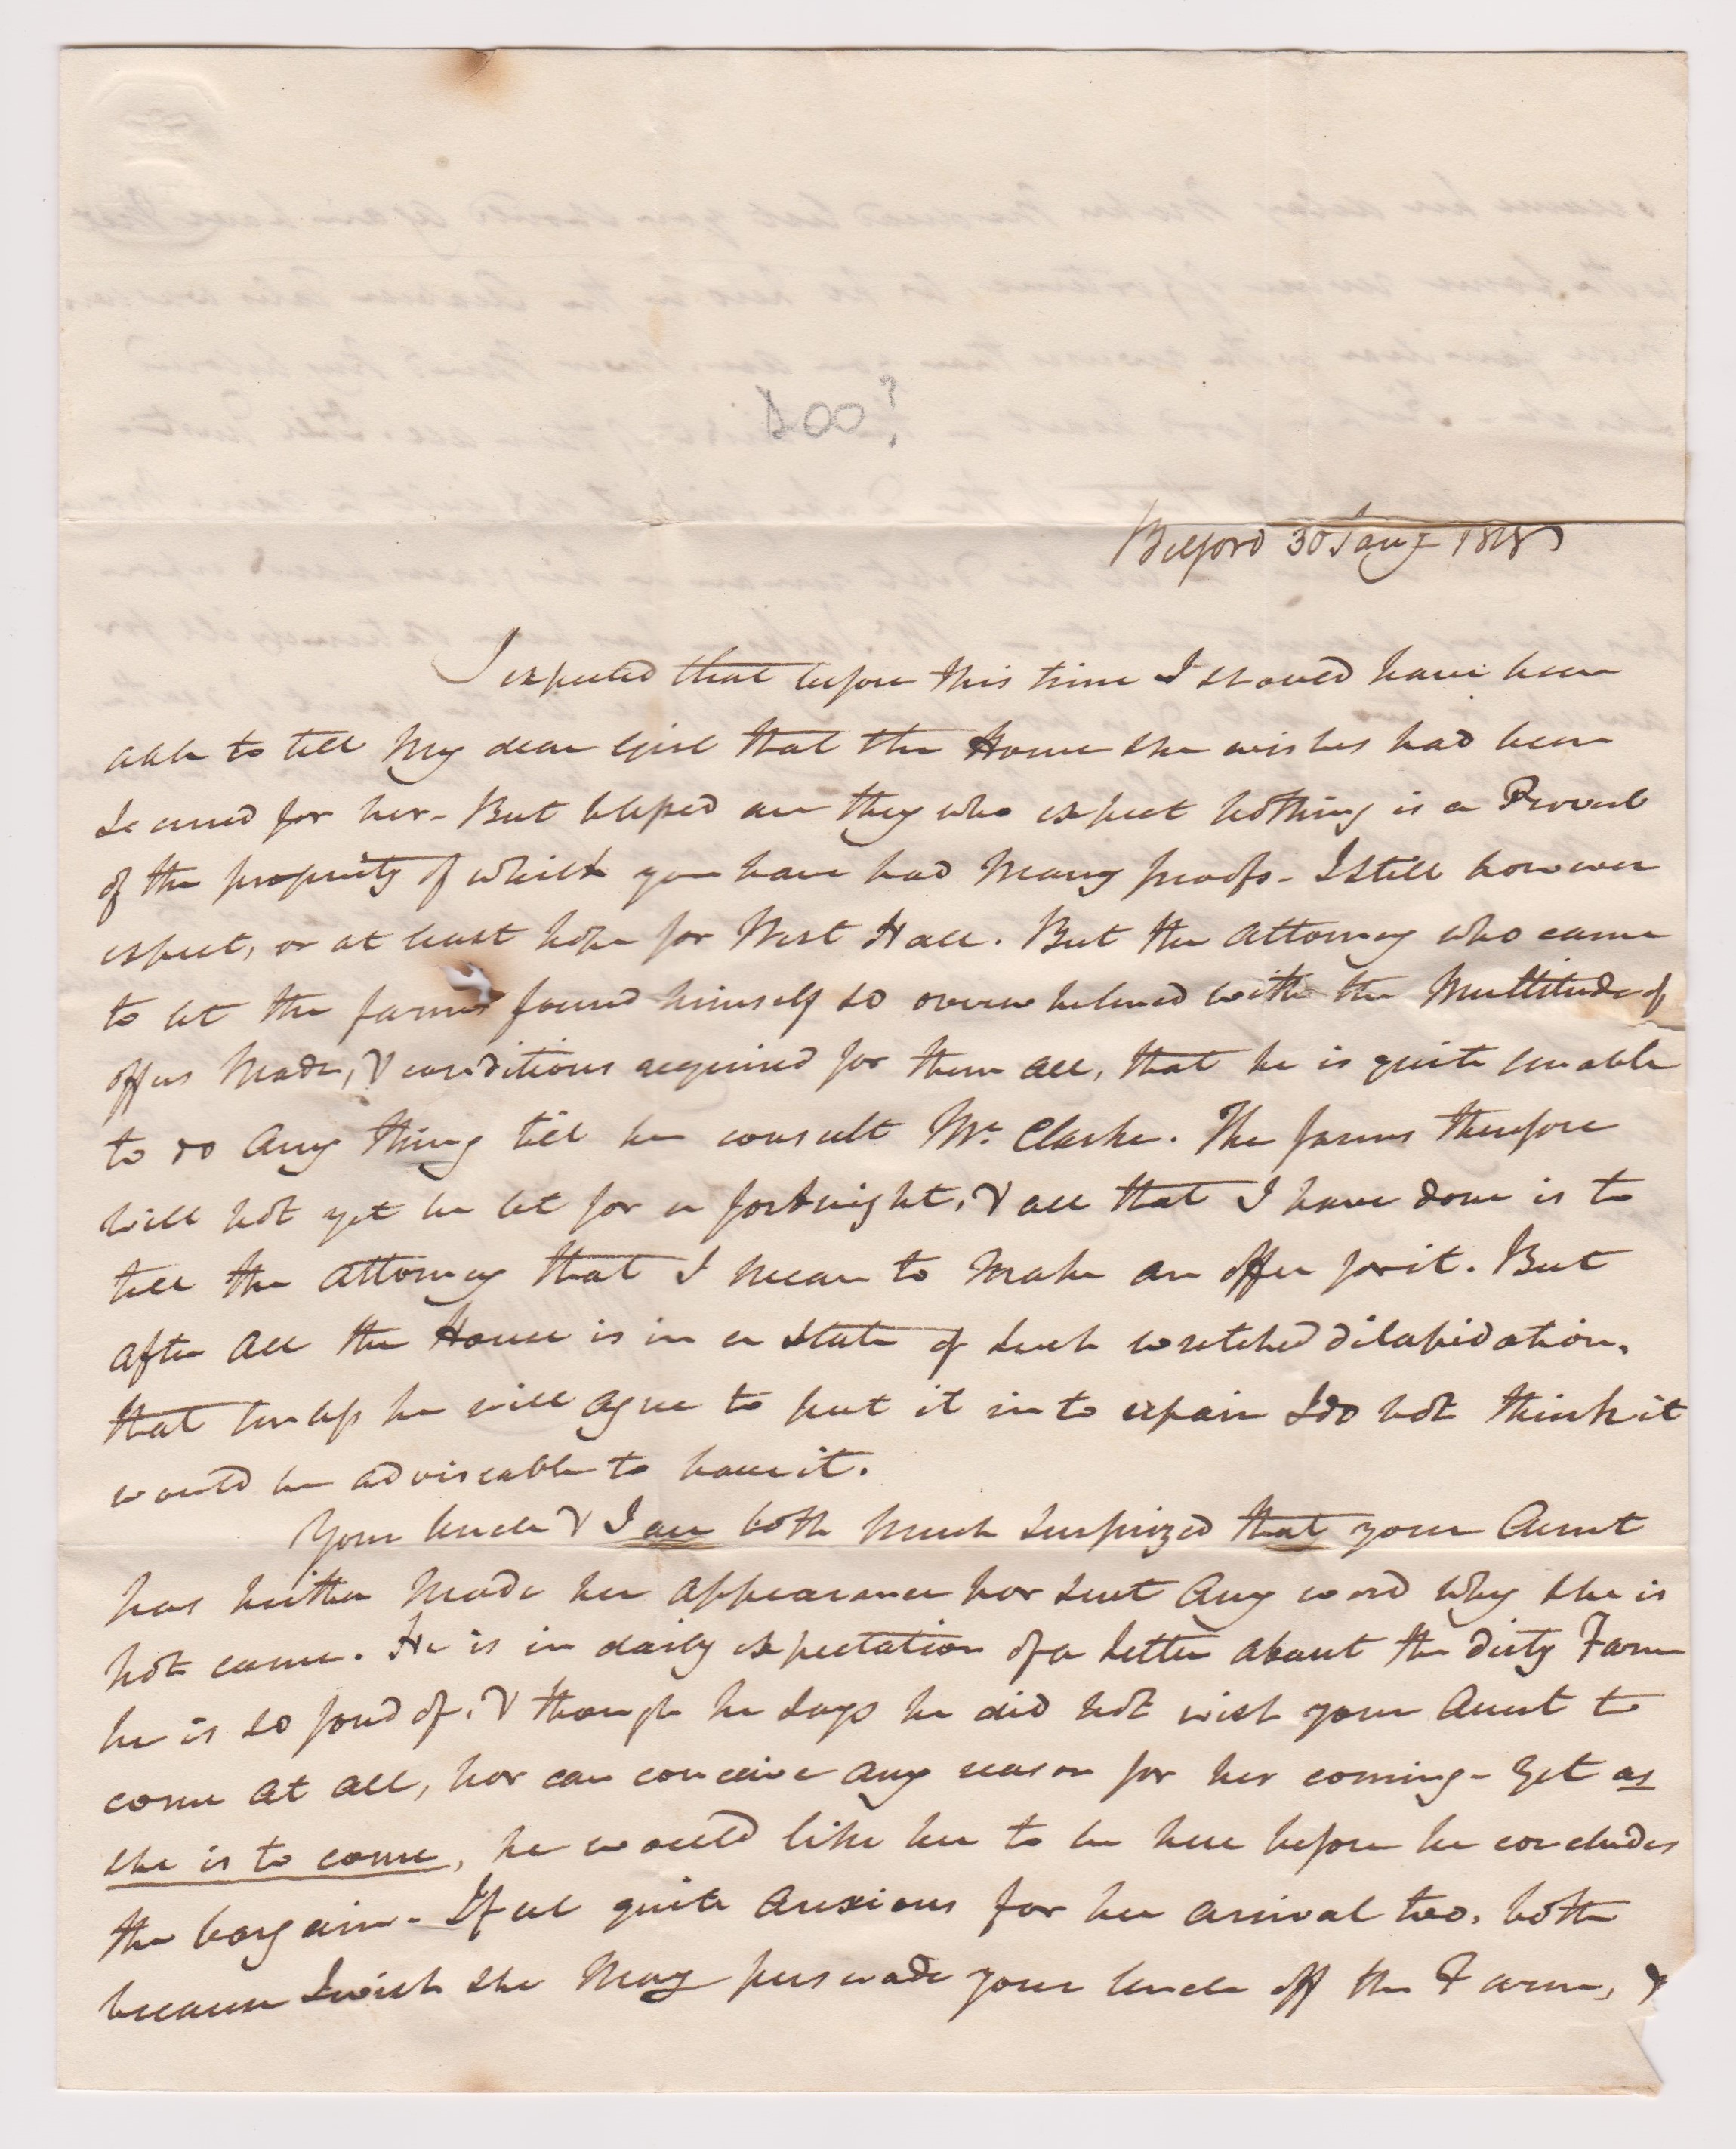 DOO?
Belford 30 Jany 1818
I expected that before this time I should have been
able to tell My dear Girl that the House she wishes had been
Secured for her - But blessed are they who expect nothing is a Proverb
of the propriety of which you have had Many proofs - I still however
expect, or at least hope for West Hall. But the Attorney who came
to let the farms found himself so overwhelmed with the Multitude of
offers Made, & conditions required for them all, that he is quite unable
to do Any thing till he consult Mr Clarke. The farms therefore
will not yet be let for a fortnight, & all that I have done is to
tell the Attorney that I mean to Make an offer for it. But
After All the House is in a State of Such wretched dilapidation,
that unless he will Agree to put it in to repair I do not think it
would be adviseable to have it.
Your Uncle & I are both Much Surprized that your Aunt
has neither Made her Appearance nor Sent Any word why she is
not come. He is in daily expectation of a Letter About the dirty Farm
he is so fond of, & though he Says he did not wish your Aunt to
come At All, nor can conceive Any reason for her coming - Yet as
she is to come, he would like her to be here before he concludes
the bargain - I feel quite Anxious for her Arrival too, both
because I wish she May perswade your Uncle off the Farm, &